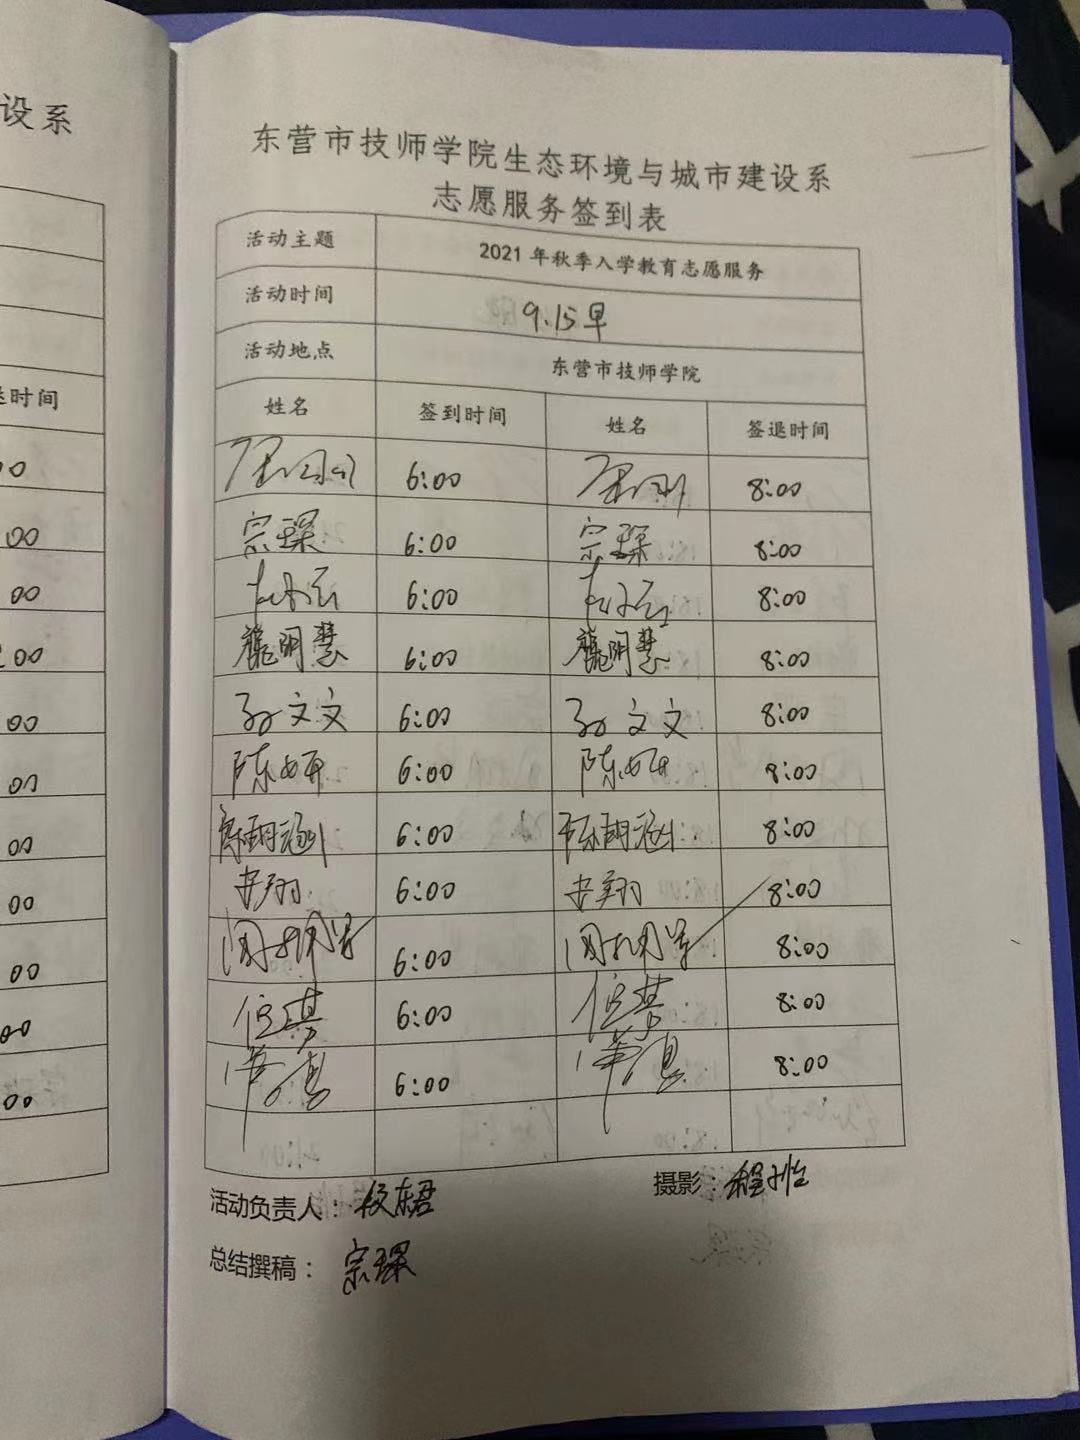 设系
退时间
00
00
00
00
00
00
00
00
00
00
00
东营市技师学院生态环境与城市建设系
志愿服务签到表
活动主题 2021年秋季入学教育志愿服务
活动时间 9.15早
活动地点 东营市技师学院
姓名 签到时间 姓名 签退时间
6:00 8:00
宗琛 6:00 宗琛 8:00
6:00 8:00
魏明慧 6:00 魏明慧 8:00
孙文文 6:00 孙文文 8:00
陈妍 6:00 陈妍 8:00
6:00 8:00
安翔 6:00 安翔 8:00
6:00 8:00
6:00 8:00
6:00 8:00
活动负责人: 摄影:
总结撰稿: 宗琛